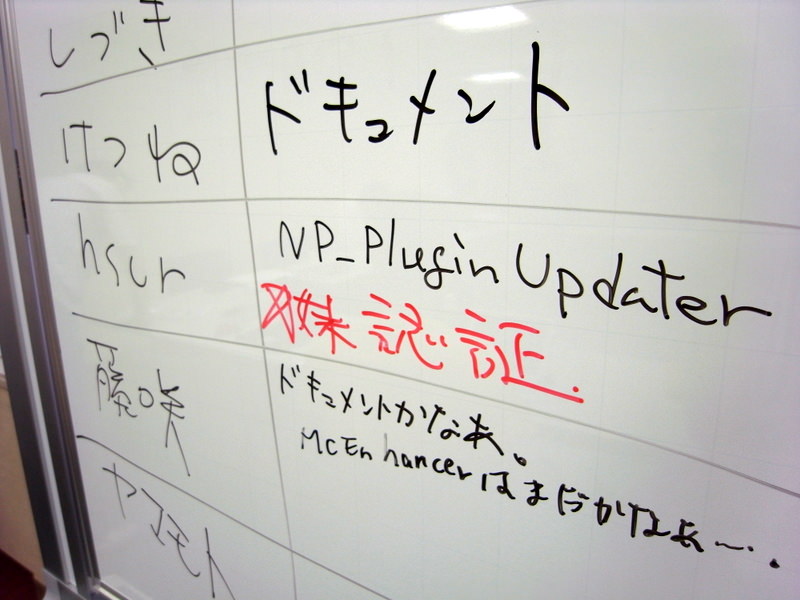 しづき
けつね
ドキュメント
hsur
NP_PluginUpdater
妹認証.
藤咲
ドキュメントかなあ。
MCEnhancerはまだかなぁ〜.
ヤマモト